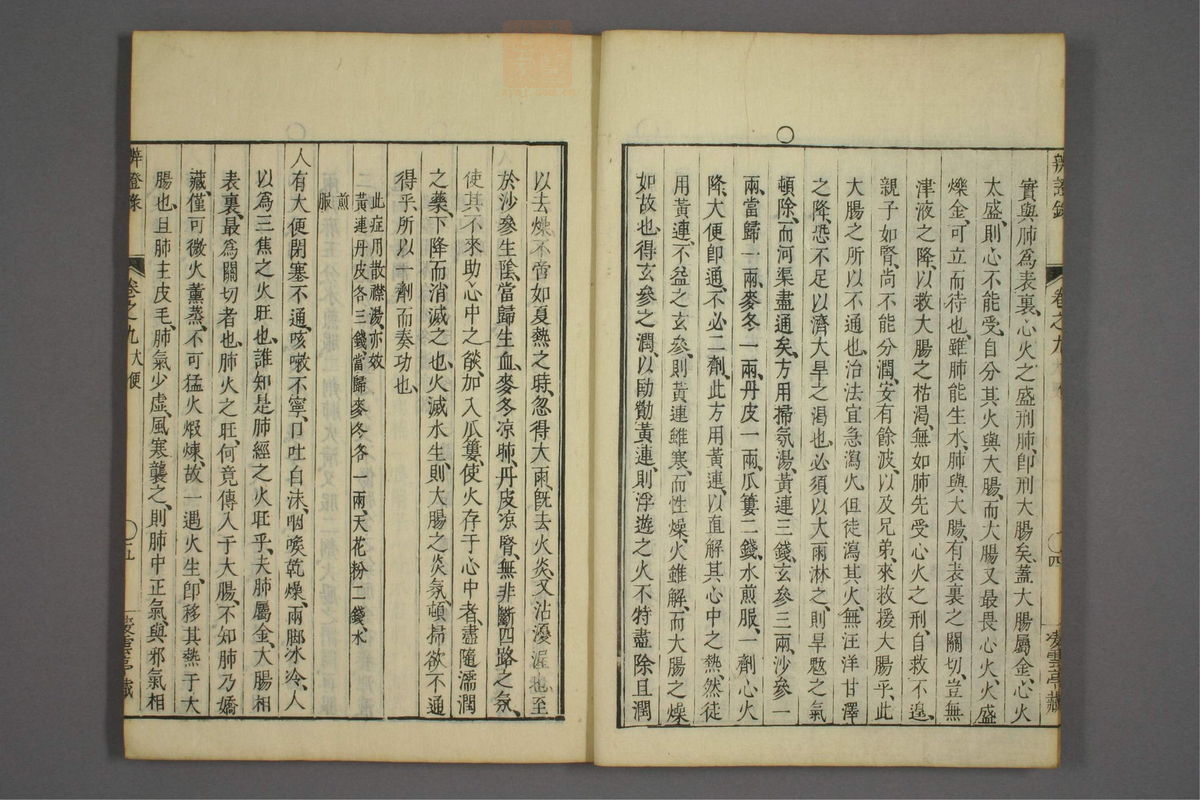 辨證錄
卷之九
大便
四
凌雲亭藏
實與肺爲表裏、心火之盛刑肺、卽刑大腸矣、蓋大腸屬金、心火
太盛、則心不能受、自分其火與大腸、而大腸又最畏心火、火盛
爍金、可立而待也、雖肺能生水、肺與大腸、有表裏之關切、豈無
津液之降、以救大腸之枯渴、無如肺先受心火之刑、自救不遑、
親子如腎、尚不能分潤、安有餘波、以及兄弟、來救援大腸乎、此
大腸之所以不通也、治法宜急瀉火、但徒瀉其火、無汪洋甘澤
之降、恐不足以濟大旱之渴也、必須以大雨淋之、則旱魃之氣
頓除、而河渠盡通矣、方用掃氛湯、黃連三錢、玄參三兩、沙參一
兩、當歸一兩、麥冬一兩、丹皮一兩、瓜蔞二錢、水煎服、一劑心火
降、大便卽通、不必二劑、此方用黃連、以直解其心中之熱、然徒
用黃連、不益之玄參、則黃連雖寒、而性燥、火雖解、而大腸之燥
如故也、得玄參之潤、以助勷黃連、則浮遊之火不特盡除、且潤
以去燥、不啻如夏熱之時、忽得大雨、旣去火炎、又沾優渥也、至
於沙參生陰、當歸生血、麥冬凉肺、丹皮凉腎、無非斷四路之氛、
使其不來助心中之燄、加入瓜蔞、使火存于心中者、盡隨濡潤
之藥、下降而消滅之也、火滅水生、則大腸之炎氛、頓掃、欲不通
得乎、所以一劑而奏功也、
此症用散襟湯、亦效
黃連丹皮各三錢當歸麥冬各一兩、天花粉二錢水
煎服
人有大便閉塞不通、咳嗽不寧、口吐白沫、咽喉乾燥、兩脚冰冷、人
以爲三焦之火旺也、誰知是肺經之火旺乎、夫肺屬金、大腸相
表裏、最爲關切者也、肺火之旺、何竟傳入于大腸、不知肺乃嬌
藏、僅可微火薰蒸、不可猛火煅煉、故一遇火生、卽移其熱于大
腸也、且肺主皮毛、肺氣少虛、風寒襲之、則肺中正氣、與邪氣相
辨證錄
卷之九
大便
五
凌雲亭藏